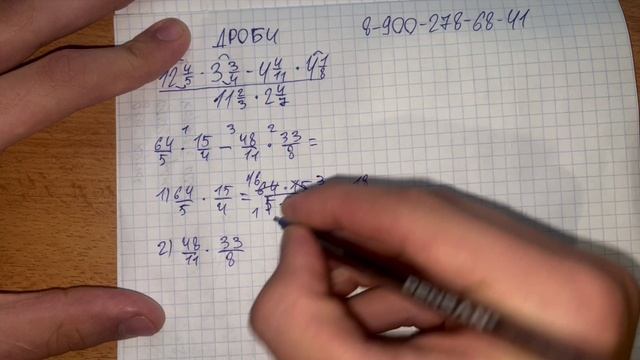 ДРОБИ 8-900-278-68-41
12 4/5 · 3 3/4 - 4 4/11 · 4 1/8
11 2/3 · 2 4/7
64/5 · 15/4 - 48/11 · 33/8 =
1) 64/5 · 15/4 = 64 · 15
2) 48/11 · 33/8